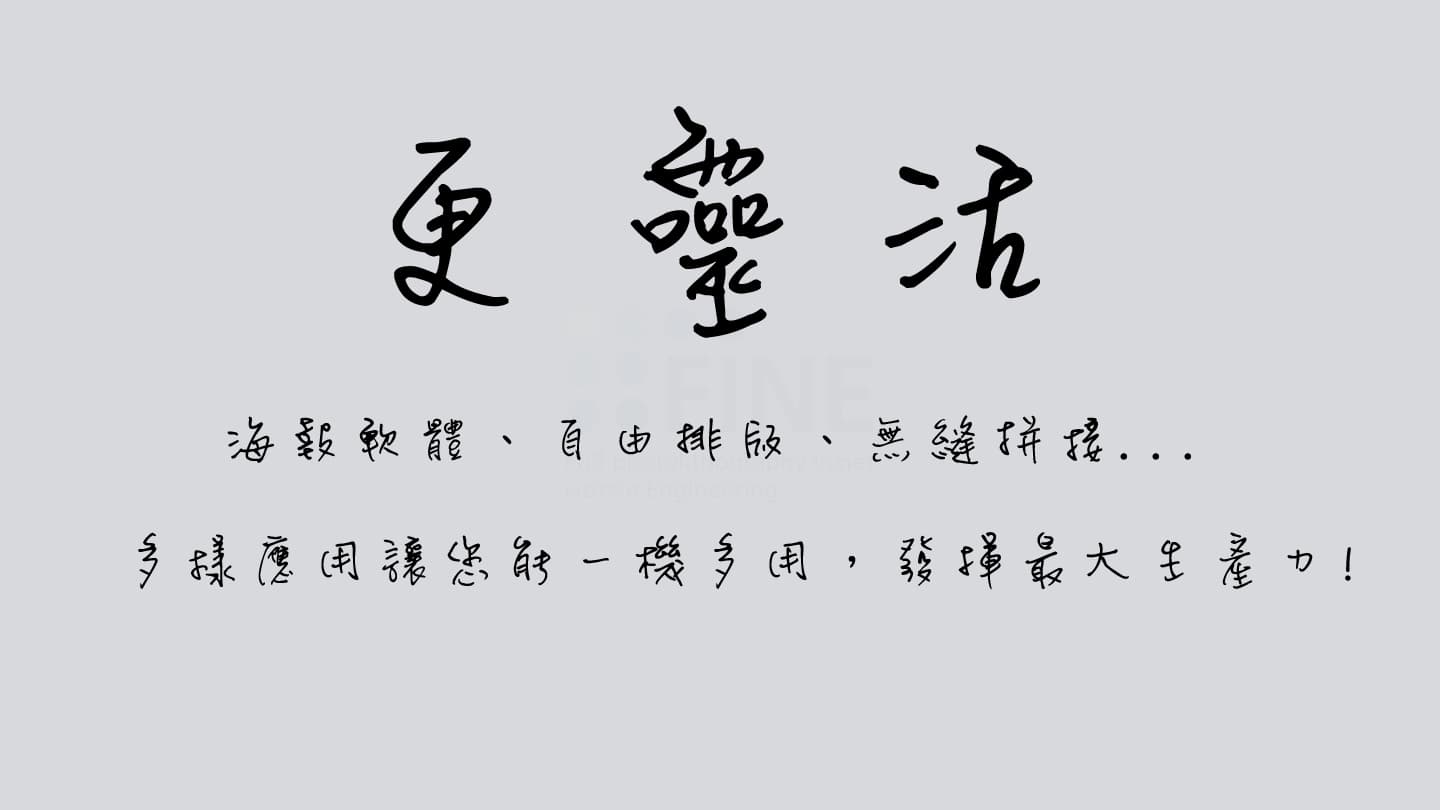 更靈活
海報軟體、自由排版、無縫拼接...
多樣應用讓您能一機多用，發揮最大生產力!
FINE